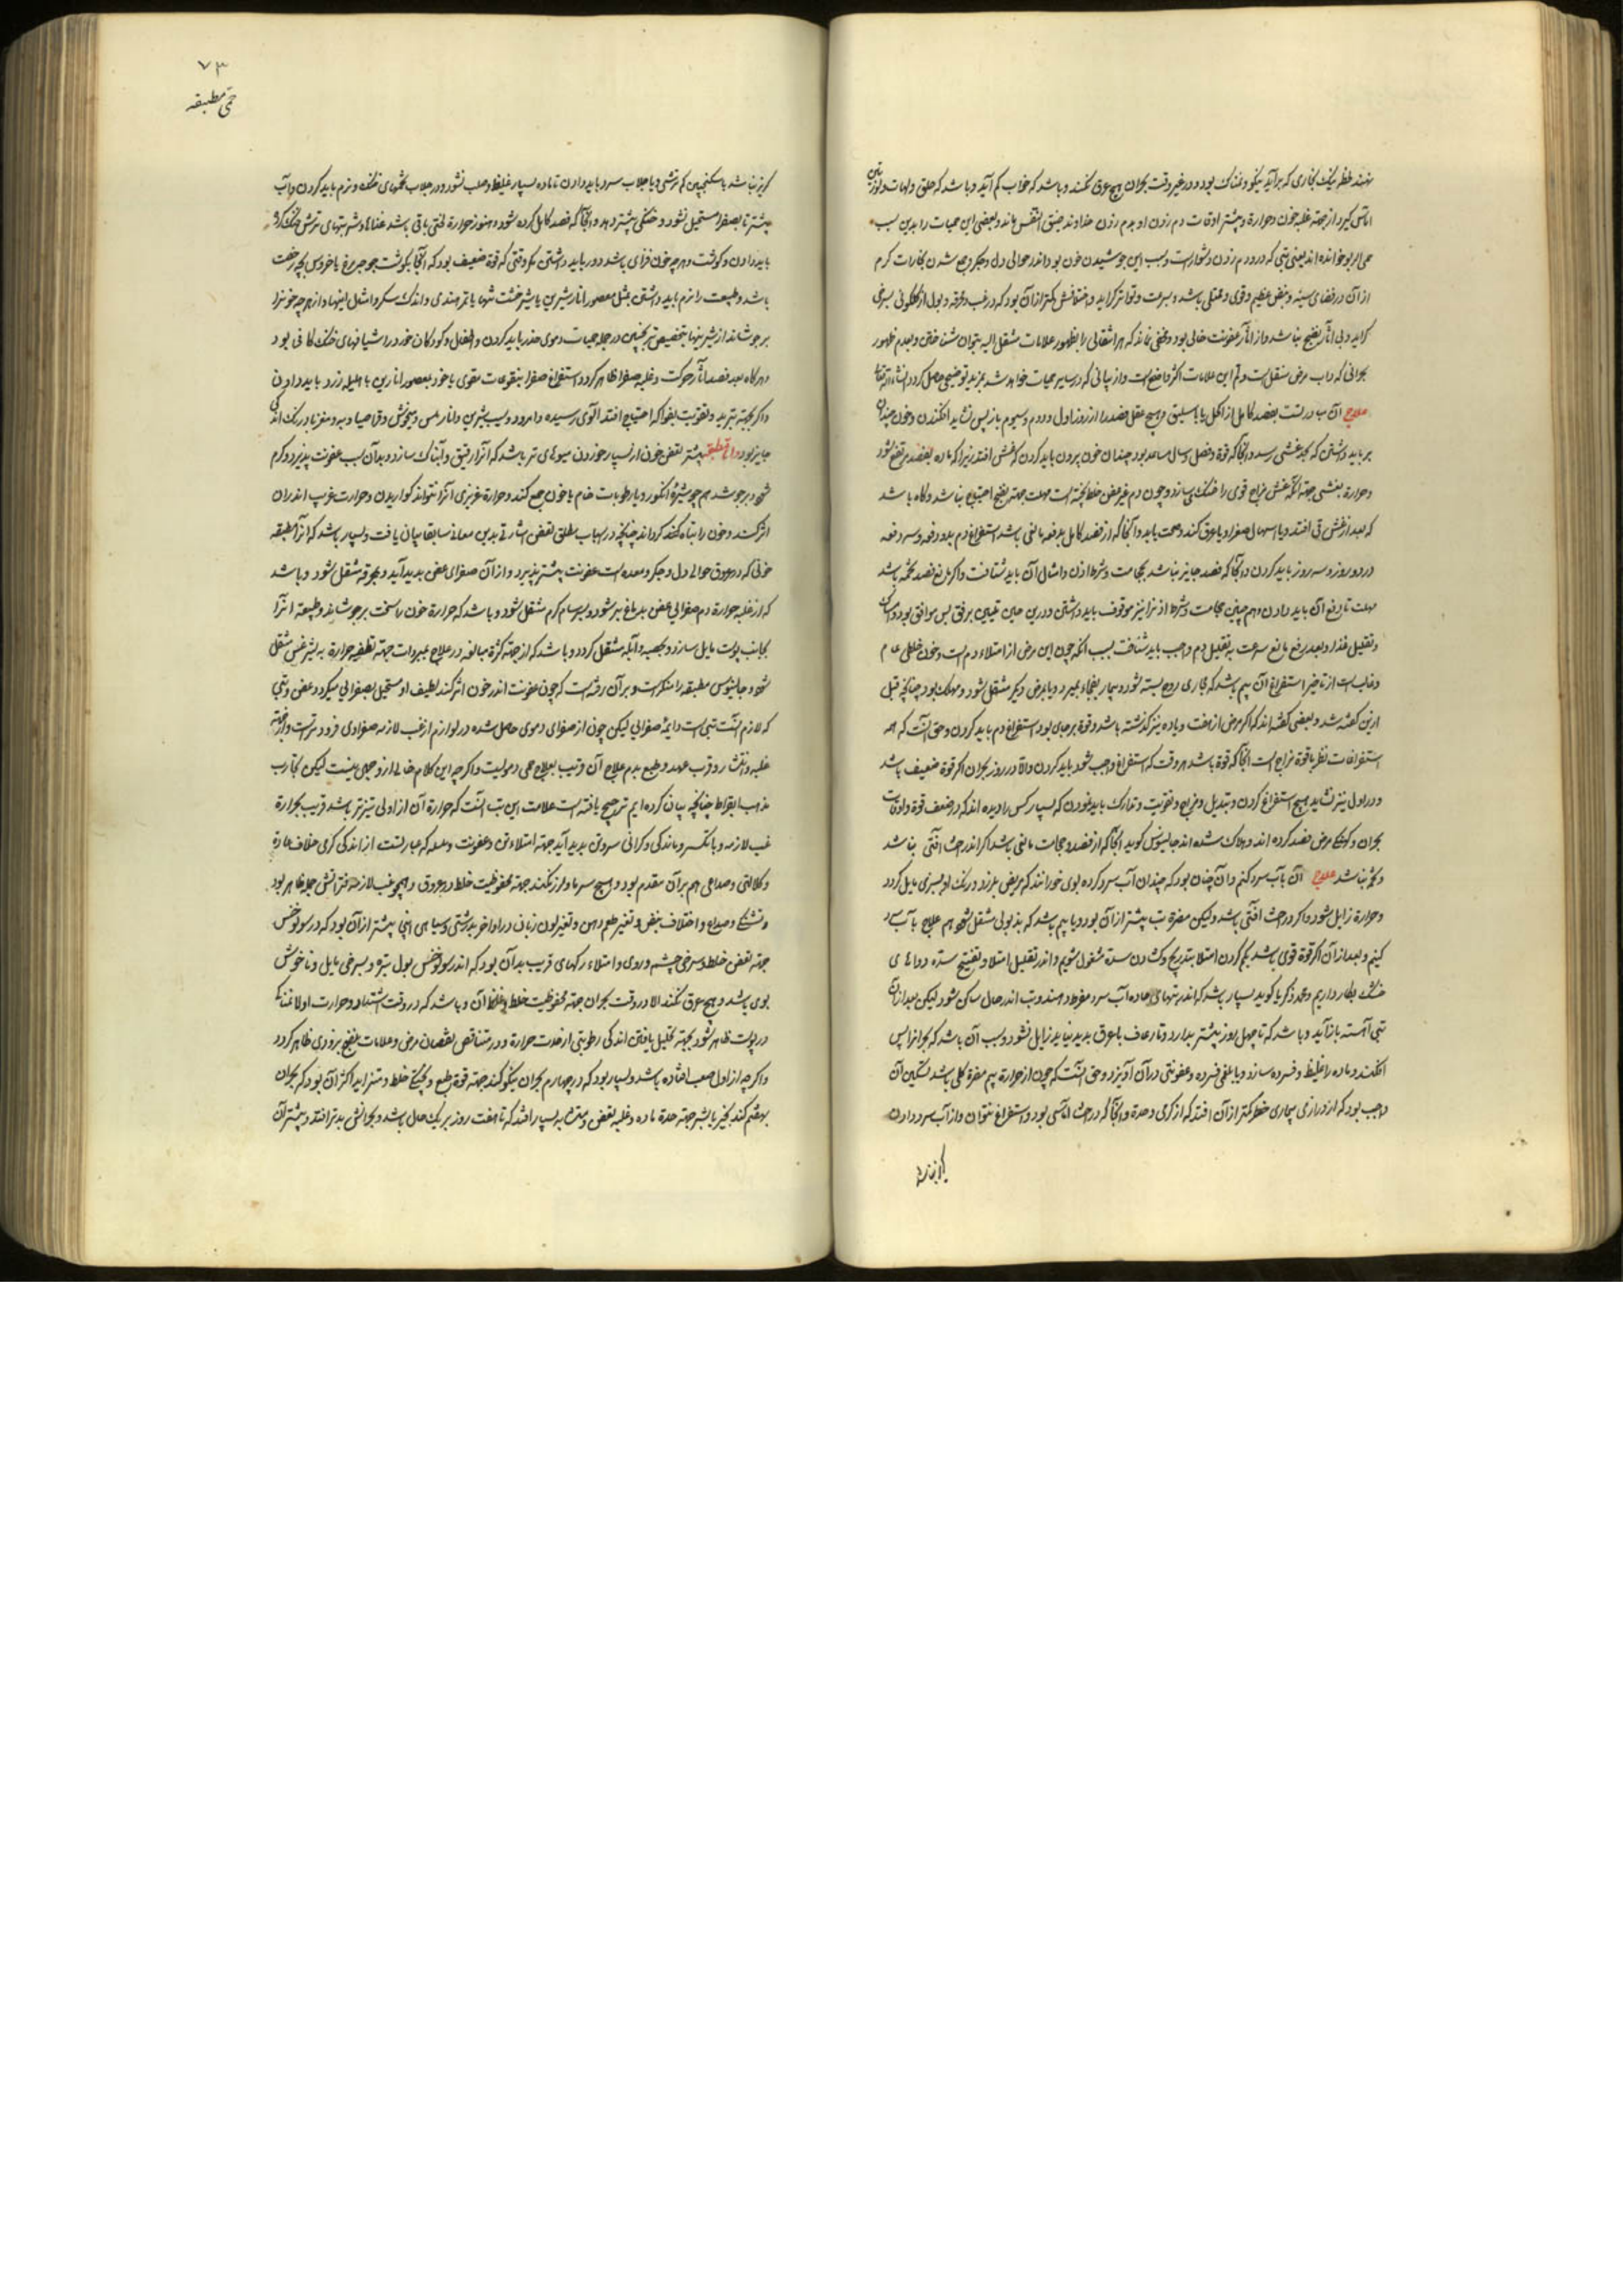 نهند خطر نیک بخاری که برآید نیکو و نمناک بود و در غیر وقت بحران هیچ عرق نکند و باشد که خواب کم آید و باشد که حلق و لهات و لوزتین
اماس گیرد از جهة غلبه خون و حرارة و بیشتر اوقات دم زدن او بدم زدن خداوند ضیق النفس ماند و بعضی این حمیات را بدین سبب
حمی الربو خوانده اند یعنی تبی که در و دم زدن دشوار است و سبب این جوشیدن خون بود اندر حوالی دل و جگر و جمع شدن بخارات گرم
از آن در فضای سینه و نبض عظیم و قوی و ممتلی باشد و بسرعت و تواتر گراید و اختلافش کمتر از آن بود که در غب و محرقه و بول از گلگونی بسرخی
گراید و بی آثار نضج نباشد و از آثار عفونت خالی بود و مخفی نماند که هر انتقالی را بظهور علامات منتقل الیه بتوان شناختن و بعدم ظهور
بحرانی که داب مرض منتقل است و تم این علامات اکثر واضح است و از بیانی که در سایر حمیات خواهد شد بمزید توضیحی حاصل گردد انشاء الله تعالی
علاج آن بمبادرتست بفصد کامل از اکحل یا باسلیق و هیچ عقل فصد را از روز اول و دوم و سیوم باز پس نشاید افکندن و خون چندان
بر باید داشتن که بحد غشی رسد و آنجا که قوة و فصل و سال مساعد بود چندان خون بیرون باید کردن که غشی افتد زیرا که ماده بفصد مرتفع شود
و حرارة بغشی جهة آنکه غشی مزاج قوی را خنک بسازد و چون دم غیر عفن خلط پخته است مهلت جهة نضج احتیاج نباشد و گاه باشد
که بعد از غشی قی افتد و یا اسهال صفرا و یا عرق کند و صحت یابد و آنجا که از فصد کامل بدفعه مانعی باشد استفراغ دم بدو دفعه و سه دفعه
در دو روز و سه روز باید کردن و آنجا که فصد جایز نباشد بحجامت و شرط اذن و امثال آن باید شتافت و اگر مانع فصد تخمه باشد
مهلت تا رفع آن باید دادن و هم چنین حجامت و شرط اذن را نیز موقوف باید داشتن و درین حین تلیین برفق بس موافق بود و امساک
و تقلیل غذا و بعد رفع مانع سرعت به تقلیل دم واجب باید شناخت بسبب آنکه چون این مرض از امتلاء دم است و خون خلطی عام
و غالب است از تاخیر استفراغ آن بیم باشد که مجاری روح بسته شود و بیمار بفجاء بمیرد و یا بمرض دیگر منتقل شود و مهلک بود چنانچه قبل
ازین گفته شد و بعضی گفته اند که اگر مرض از هفت و یا ده نیز گذشته باشد و قوة برجای بود استفراغ دم باید کردن و حق آنست که همه
استفراغات نظر باقوة مزاج است آنجا که قوة باشد هر وقت که استفراغ واجب شود باید کردن و الا در روز بحران اگر قوة ضعیف باشد
و در اول نیز نشاید هیچ استفراغ کردن و تبدیل مزاج و تقویت و تدارک باید نمودن که بسیار کس را دیده اند که در ضعف قوة و اوقات
بحران و مرض فصد کرده اند و هلاک شده اند جالینوس گوید آنجا که از فصد و حجامت مانعی باشد اگر اندر احشا آفتی نباشد
و تخمه نباشد علاج آن بآب سرد کنم و آن چنان بود که چندان آب سرد کرده بوی خورانند که مریض بلرزد و رنگ او بسبزی مایل گردد
و حرارة زایل شود و اگر در احشا آفتی باشد ولیکن مضرة تب بیشتر از آن بود و یا بیم باشد که بذبولی منتقل شود هم علاج بآب سرد
کنیم و بعد از آن اگر قوة قوی باشد بکم کردن امتلا بتدریج و گشادن سدة مشغول شویم و اندر تقلیل امتلا و تفتیح سدة دواهای
خنک بکار داریم و محمد ذکریا گوید بسیار باشد که اندر تبهای حاده آب سرد مفرط دهند و تب اندر حال ساکن شود لیکن بعد از آن
تبی آهسته باز آید و باشد که تا چهل روز بیشتر بدارد و تا رعاف یا عرق پدید نیاید زایل نشود و سبب آن باشد که بحران را پس
افکند و ماده را غلیظ و فسرده سازد و یا بلغمی فسرده و عفونتی در آن آمیزد و حق آنست که چون از حرارة بیم مضرة کلی باشد تسکین آن
واجب بود که از درازی بیماری خطر کمتر از آن افتد که از گرمی و حدة و آنجا که در احشا اماسی بود و استفراغ نتوان و از آب سرد دادن
گریز نباشد
۷۳
حمی مطبقه
گریز نباشد با سکنجبین کم ترشی و یا جلاب سرد باید دادن تا ماده بسیار غلیظ و صلب نشود و در جلاب تخمهای خنک و نرم باید کردن و آب
بیشتر تا بصفرا مستحیل نشود و خنکی بیشتر دهد و آنجا که فصد کامل کرده شود و هنوز حرارة لختی باقی باشد غذاها و شربتهای ترش خنک کرده
باید دادن و گوشت و هر چه خون فزای باشد دور باید داشتن مگر وقتی که قوة ضعیف بود که آنجا بگوشت جوجه مرغ یا خروس بچه رخصت
باشد و طبیعت را نرم باید داشتن بمثل معصور انار شیرین یا شیرخشت شبها یا تمر هندی و اندک سکر و امثال اینها و از هر چه خون را
برجوشاند از شیرینها بتخصیص ترنجبین در جمله حمیات دموی حذر باید کردن و اطفال و کودکان خورد را شیافهای خنک کافی بود
و هرگاه بعد فصد آثار حرکت و غلبه صفرا ظاهر گردد استفراغ صفرا بنقوعات مقوی یا خود بمعصور انارین با هلیله زرد باید دادن
و اگر بجهة تبرید و تقویت بفواکه احتیاج افتد آلوی رسیده و امرود و سیب شیرین و انار ملس و میخوش و قاصیا و به و مغز بادرنگ اندکی
جایز بود واقع مطبقه بیشتر تعفن خون از بسیار خوردن میوهای تر باشد که آنرا رقیق و آبناک سازد و بدآن سبب عفونت پذیرد و گرم
شود و برجوشد هم چو شیرهٔ انگور و یا رطوبات خام با خون جمع کند و حرارة غریزی آنرا نتواند گواریدن و حرارت غریب اندر آن
اثر کند و خون را تباه کند گرداند چنانچه در اسباب مطلق تعفن اشارتی بدین معانی سابقا بیان یافت و بسیار باشد که آنرا مطبقه
خونی که در عروق حوالی دل و جگر و معده است عفونت بیشتر پذیرد و از آن صفرای عفن پدید آید و بمحرقه منتقل شود و باشد
که از غلبه حرارة دم صفرائی عفن بدماغ بر شود و بسرسام گرم منتقل شود و باشد که حرارة خون را سخت برجوشاند و طبیعة آنرا
بجانب پوست مایل سازد و بحصبه و آبله منتقل گردد و باشد که از جهة کثرة مبالغه در علاج بمبردات جهة تطفیه حرارة به لیثرغس منتقل
شود و جالینوس مطبقه را منکر است و بر آن رفته است که چون عفونت اندر خون اثر کند لطیف او مستحیل بصفرائی میگردد عفن و تبی
که لازم آنست تبی است دایمه صفرائی لیکن چون از صفرای دموی حاصل شده در لوازم از غب لازمه صفراوی فرود ترست و از جهة
غلبه و انتشار و قرب عهد و طبع بدم علاج آن قریب بعلاج حمی دمویست و اگر چه این کلام خالی از وجهی نیست لیکن بتجارب
مذهب بقراط چنانچه بیان کرده ایم ترجیح یافته است علامات این تب آنست که حرارة آن از اولی تیزتر باشد قریب بحرارة
غب لازمه و با تکسر و ماندگی و گرانی سر و تن پدید آید جهة امتلاء تن و عفونت و ملیله که عبارتست از اندکی گرمی خلاف عادة
و کلالتی و صداعی هم بر آن مقدم بود و هیچ سرما و لرز نکند جهة محفوظیت خلط در عروق و همچو غب لازمه فترانش جمله ظاهر بود
و تشنگی و صداع و اختلاف نبض و تغیر طعم دهن و تغیر لون زبان در اواخر بدرشتی و سیاهی اینجا بیشتر از آن بود که در سونوخس
جهة تعفن خلط و سرخی چشم و روی و امتلاء رگهای قریب بدآن بود که اندر سونوخس بول تیره و بسرخی مایل و ناخوش
بوی باشد و هیچ عرق نکند الا در وقت بحران جهة محفوظیت خلط و غلظ آن و باشد که در وقت اشتداد حرارت اولا نمناکی
در پوست ظاهر شود بجهة تحلیل یافتن اندکی رطوبتی از حدت حرارة و در متناقص نقصان مرض و علامات نضج بزودی ظاهر گردد
و اگر چه از اول صعب افتاده باشد و بسیار بود که در چهارم بحران نیکو کند جهة قوة طبع و پختگی خلط و متزاید اکثر آن بود که بحران
بهفتم کند بخیر یا بشر جهة حدة ماده و غلبه تعفن و متشابه بسیار افتد که تا هفت روز بر یک حال باشد و بحرانش بدتر افتد و بیشتر آن